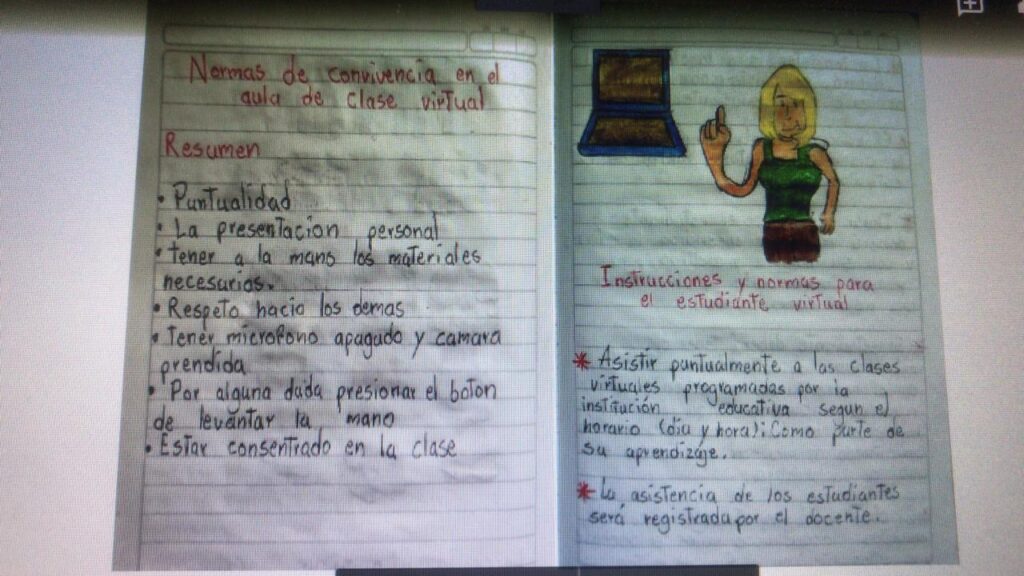 Normas de convivencia en el
aula de clase virtual
Resumen
• Puntualidad
• La presentacion personal
• tener a la mano los materiales
necesarios.
• Respeto hacia los demas
• Tener microfono apagado y camara
prendida
• Por alguna duda presionar el boton
de levantar la mano
• Estar consentrado en la clase
Instrucciones y normas para
el estudiante virtual
* Asistir puntualmente a las clases
virtuales programadas por la
institución educativa segun el
horario (dia y hora); Como parte de
su aprendizaje.
* La asistencia de los estudiantes
será registrada por el docente.